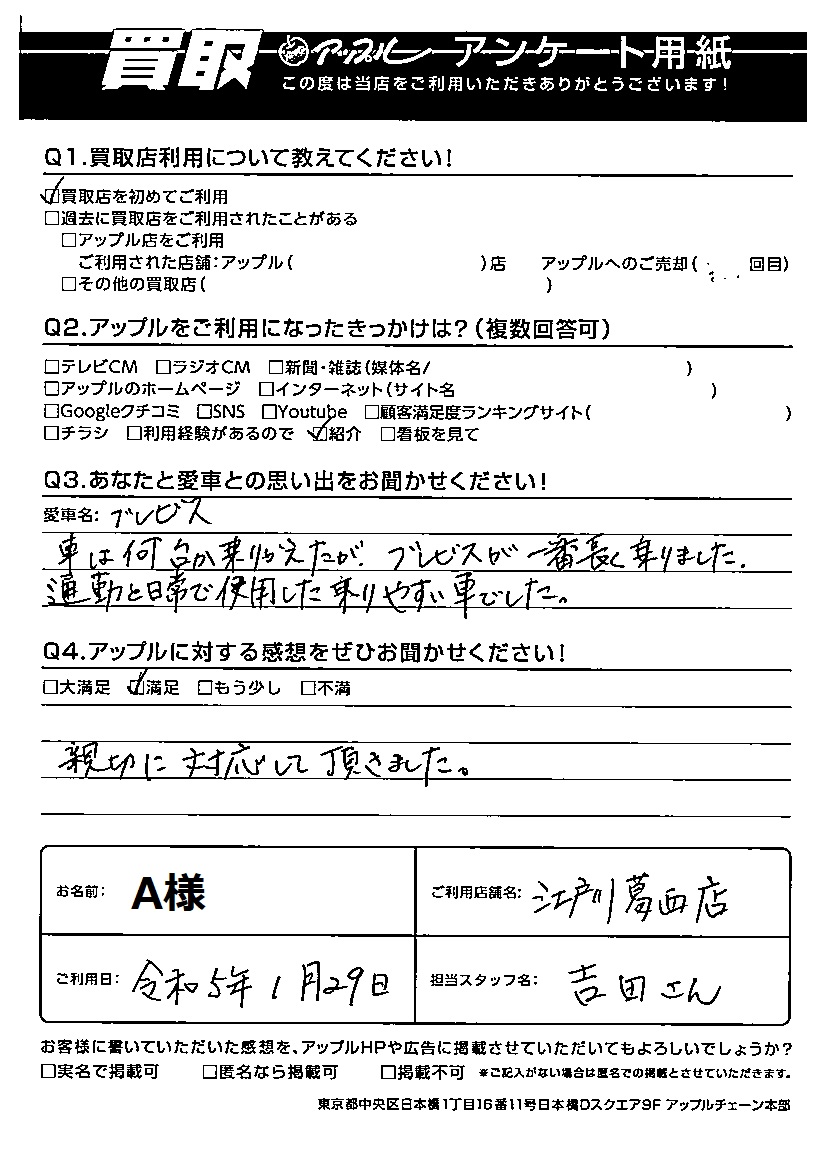 買取 アップル アンケート用紙
この度は当店をご利用いただきありがとうございます!
Q1.買取店利用について教えてください!
☑買取店を初めてご利用
□過去に買取店をご利用されたことがある
□アップル店をご利用
ご利用された店舗:アップル( )店 アップルへのご売却( 回目)
□その他の買取店( )
Q2.アップルをご利用になったきっかけは?(複数回答可)
□テレビCM □ラジオCM □新聞・雑誌(媒体名/ )
□アップルのホームページ □インターネット(サイト名 )
□Googleクチコミ □SNS □Youtube □顧客満足度ランキングサイト( )
□チラシ □利用経験があるので ☑紹介 □看板を見て
Q3.あなたと愛車との思い出をお聞かせください!
愛車名: ブレビス
車は何台か乗りかえたが、ブレビスが一番長く乗りました.
通勤と日常で使用した乗りやすい車でした。
Q4.アップルに対する感想をぜひお聞かせください!
□大満足 ☑満足 □もう少し □不満
親切に対応して頂きました。
お名前: A様 ご利用店舗名: 江戸川葛西店
ご利用日: 令和5年1月29日 担当スタッフ名: 吉田さん
お客様に書いていただいた感想を、アップルHPや広告に掲載させていただいてもよろしいでしょうか?
□実名で掲載可 □匿名なら掲載可 □掲載不可 ※ご記入がない場合は匿名での掲載とさせていただきます。
東京都中央区日本橋1丁目16番11号日本橋Dスクエア9F アップルチェーン本部